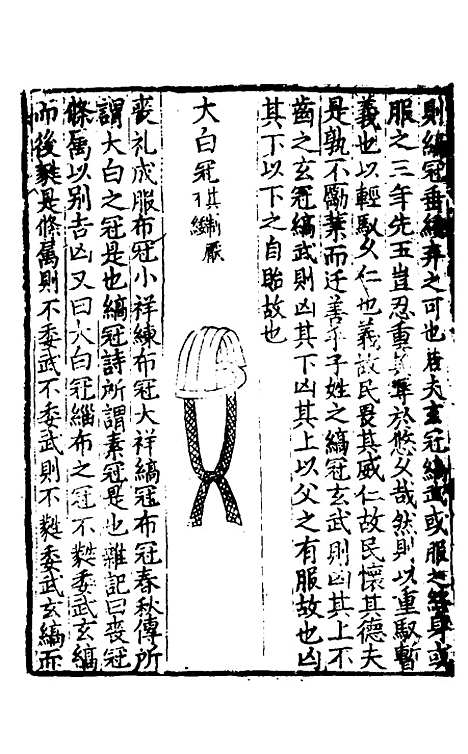 則縞冠垂緌弃之可也若夫玄冠縞武或服之終身或
服之三年先王豈忍重其罪於悠久哉然則以重馭暫
義也以輕馭久仁也義故民畏其威仁故民懷其德夫
是孰不勵業而迁善乎子姓之縞冠玄武則凶其上不
齒之玄冠縞武則凶其下凶其上以父之有服故也凶
其下以下之自貽故也
大白冠其制厭
喪礼成服布冠小祥練布冠大祥縞冠布冠春秋傳所
謂大白之冠是也縞冠詩所謂素冠是也雜記曰喪冠
條属以别吉凶又曰大白冠緇布之冠不蕤委武玄縞
而後蕤是條属則不委武不委武則不蕤委武玄縞而